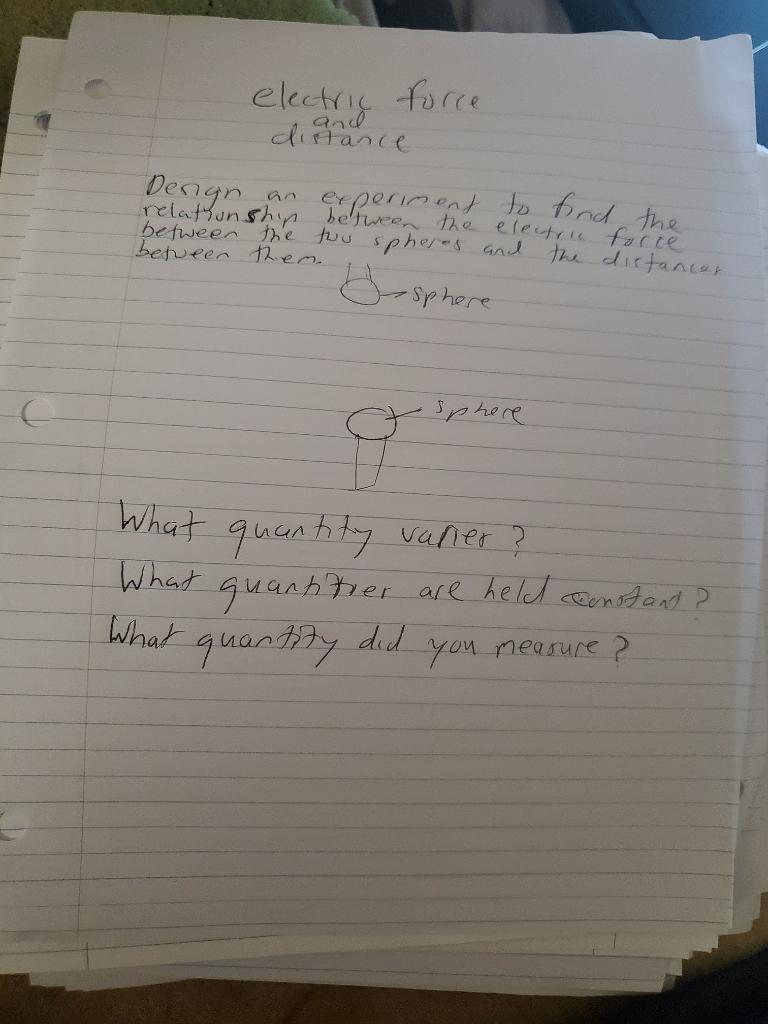 electric force
and
distance
Design an experiment to find the
relationship between the electric force
between the two spheres and the distances
between them.
sphere
sphere
What quantity varies?
What quantities are held constant?
What quantity did you measure?